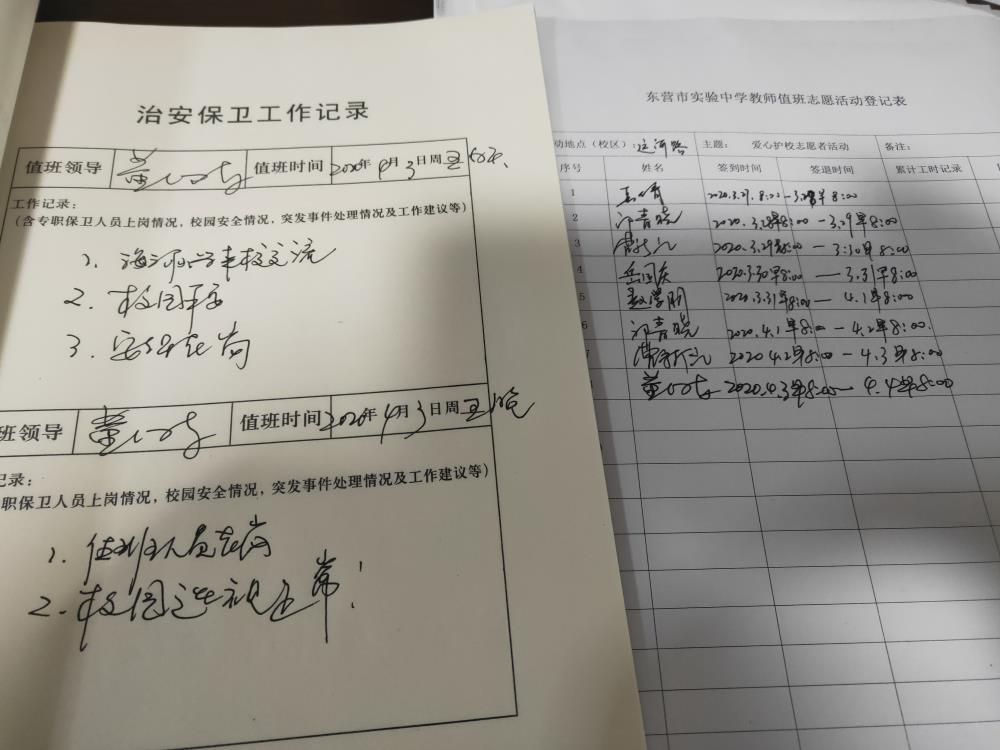 治安保卫工作记录
值班领导 董 值班时间 2020年4月3日周五
工作记录:
(含专职保卫人员上岗情况,校园安全情况,突发事件处理情况及工作建议等)
1、海河小学来校交流
2. 校园平安
3. 安保在岗
班领导 董 值班时间 2020年4月3日周五晚
记录:
职保卫人员上岗情况,校园安全情况,突发事件处理情况及工作建议等)
1. 值班人员在岗
2. 校园巡视正常!
东营市实验中学教师值班志愿活动登记表
动地点(校区): 运河路 主题: 爱心护校志愿者活动 备注:
序号 姓名 签到时间 签退时间 累计工时记录
1 2020.3.27. 8:00 — 3.28早8:00
2 许青晓 2020.3.28早8:00 — 3.29早8:00
3 2020.3.29早8:00 — 3.30早8:00
4 岳国庆 2020.3.30早8:00 — 3.31早8:00
5 赵学明 2020.3.31早8:00 — 4.1早8:00
6 许青晓 2020.4.1早8:00 — 4.2早8:00.
2020.4.2早8:00 — 4.3早8:00
董 2020.4.3早8:00 — 4.4早8:00